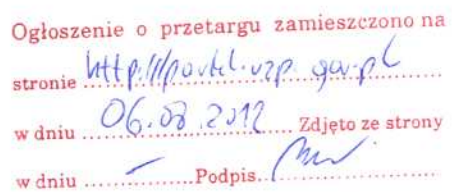 Ogłoszenie o przetargu zamieszczono na
stronie http://portal.uzp.gov.pl
w dniu 06.08.2012 Zdjęto ze strony
w dniu – Podpis